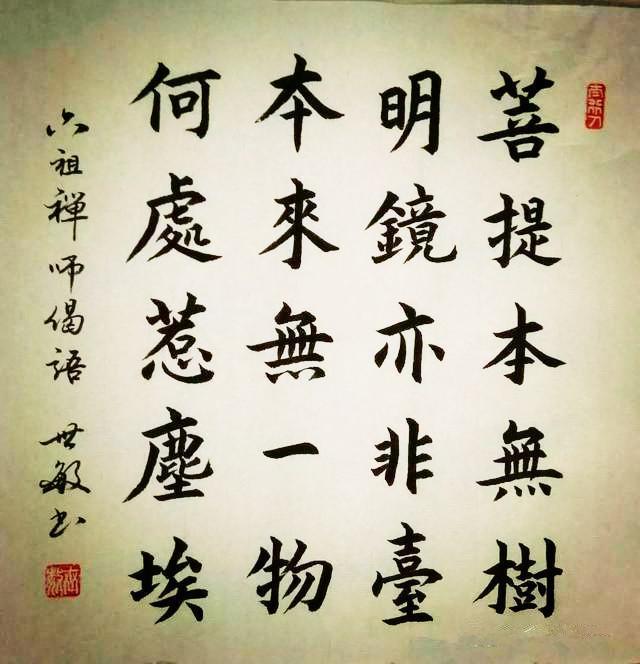 菩提本無樹
明鏡亦非臺
本來無一物
何處惹塵埃
六祖禅师偈語 世敏书